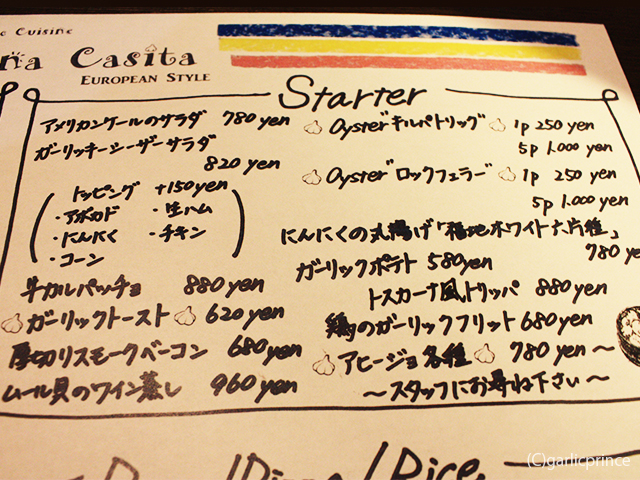 c Cuisine
na Casita
EUROPEAN STYLE
Starter
アメリカンケールのサラダ 780 yen
ガーリッキーシーザーサラダ
820 yen
トッピング +150yen
・アボカド ・生ハム
・にんにく ・チキン
・コーン
牛カルパッチョ 880 yen
ガーリックトースト 620 yen
厚切りスモークベーコン 680 yen
ムール貝のワイン蒸し 960 yen
Oysterキルパトリック 1p 250 yen
5p 1.000 yen
Oysterロックフェラー 1p 250 yen
5p 1.000 yen
にんにくの丸揚げ「福地ホワイト六片種」
780 ye
ガーリックポテト 580yen
トスカーナ風トリッパ 880 yen
鶏のガーリックフリット 680yen
アヒージョ各種 780 yen〜
〜スタッフにお尋ね下さい〜
Rice
(C)garlicprince